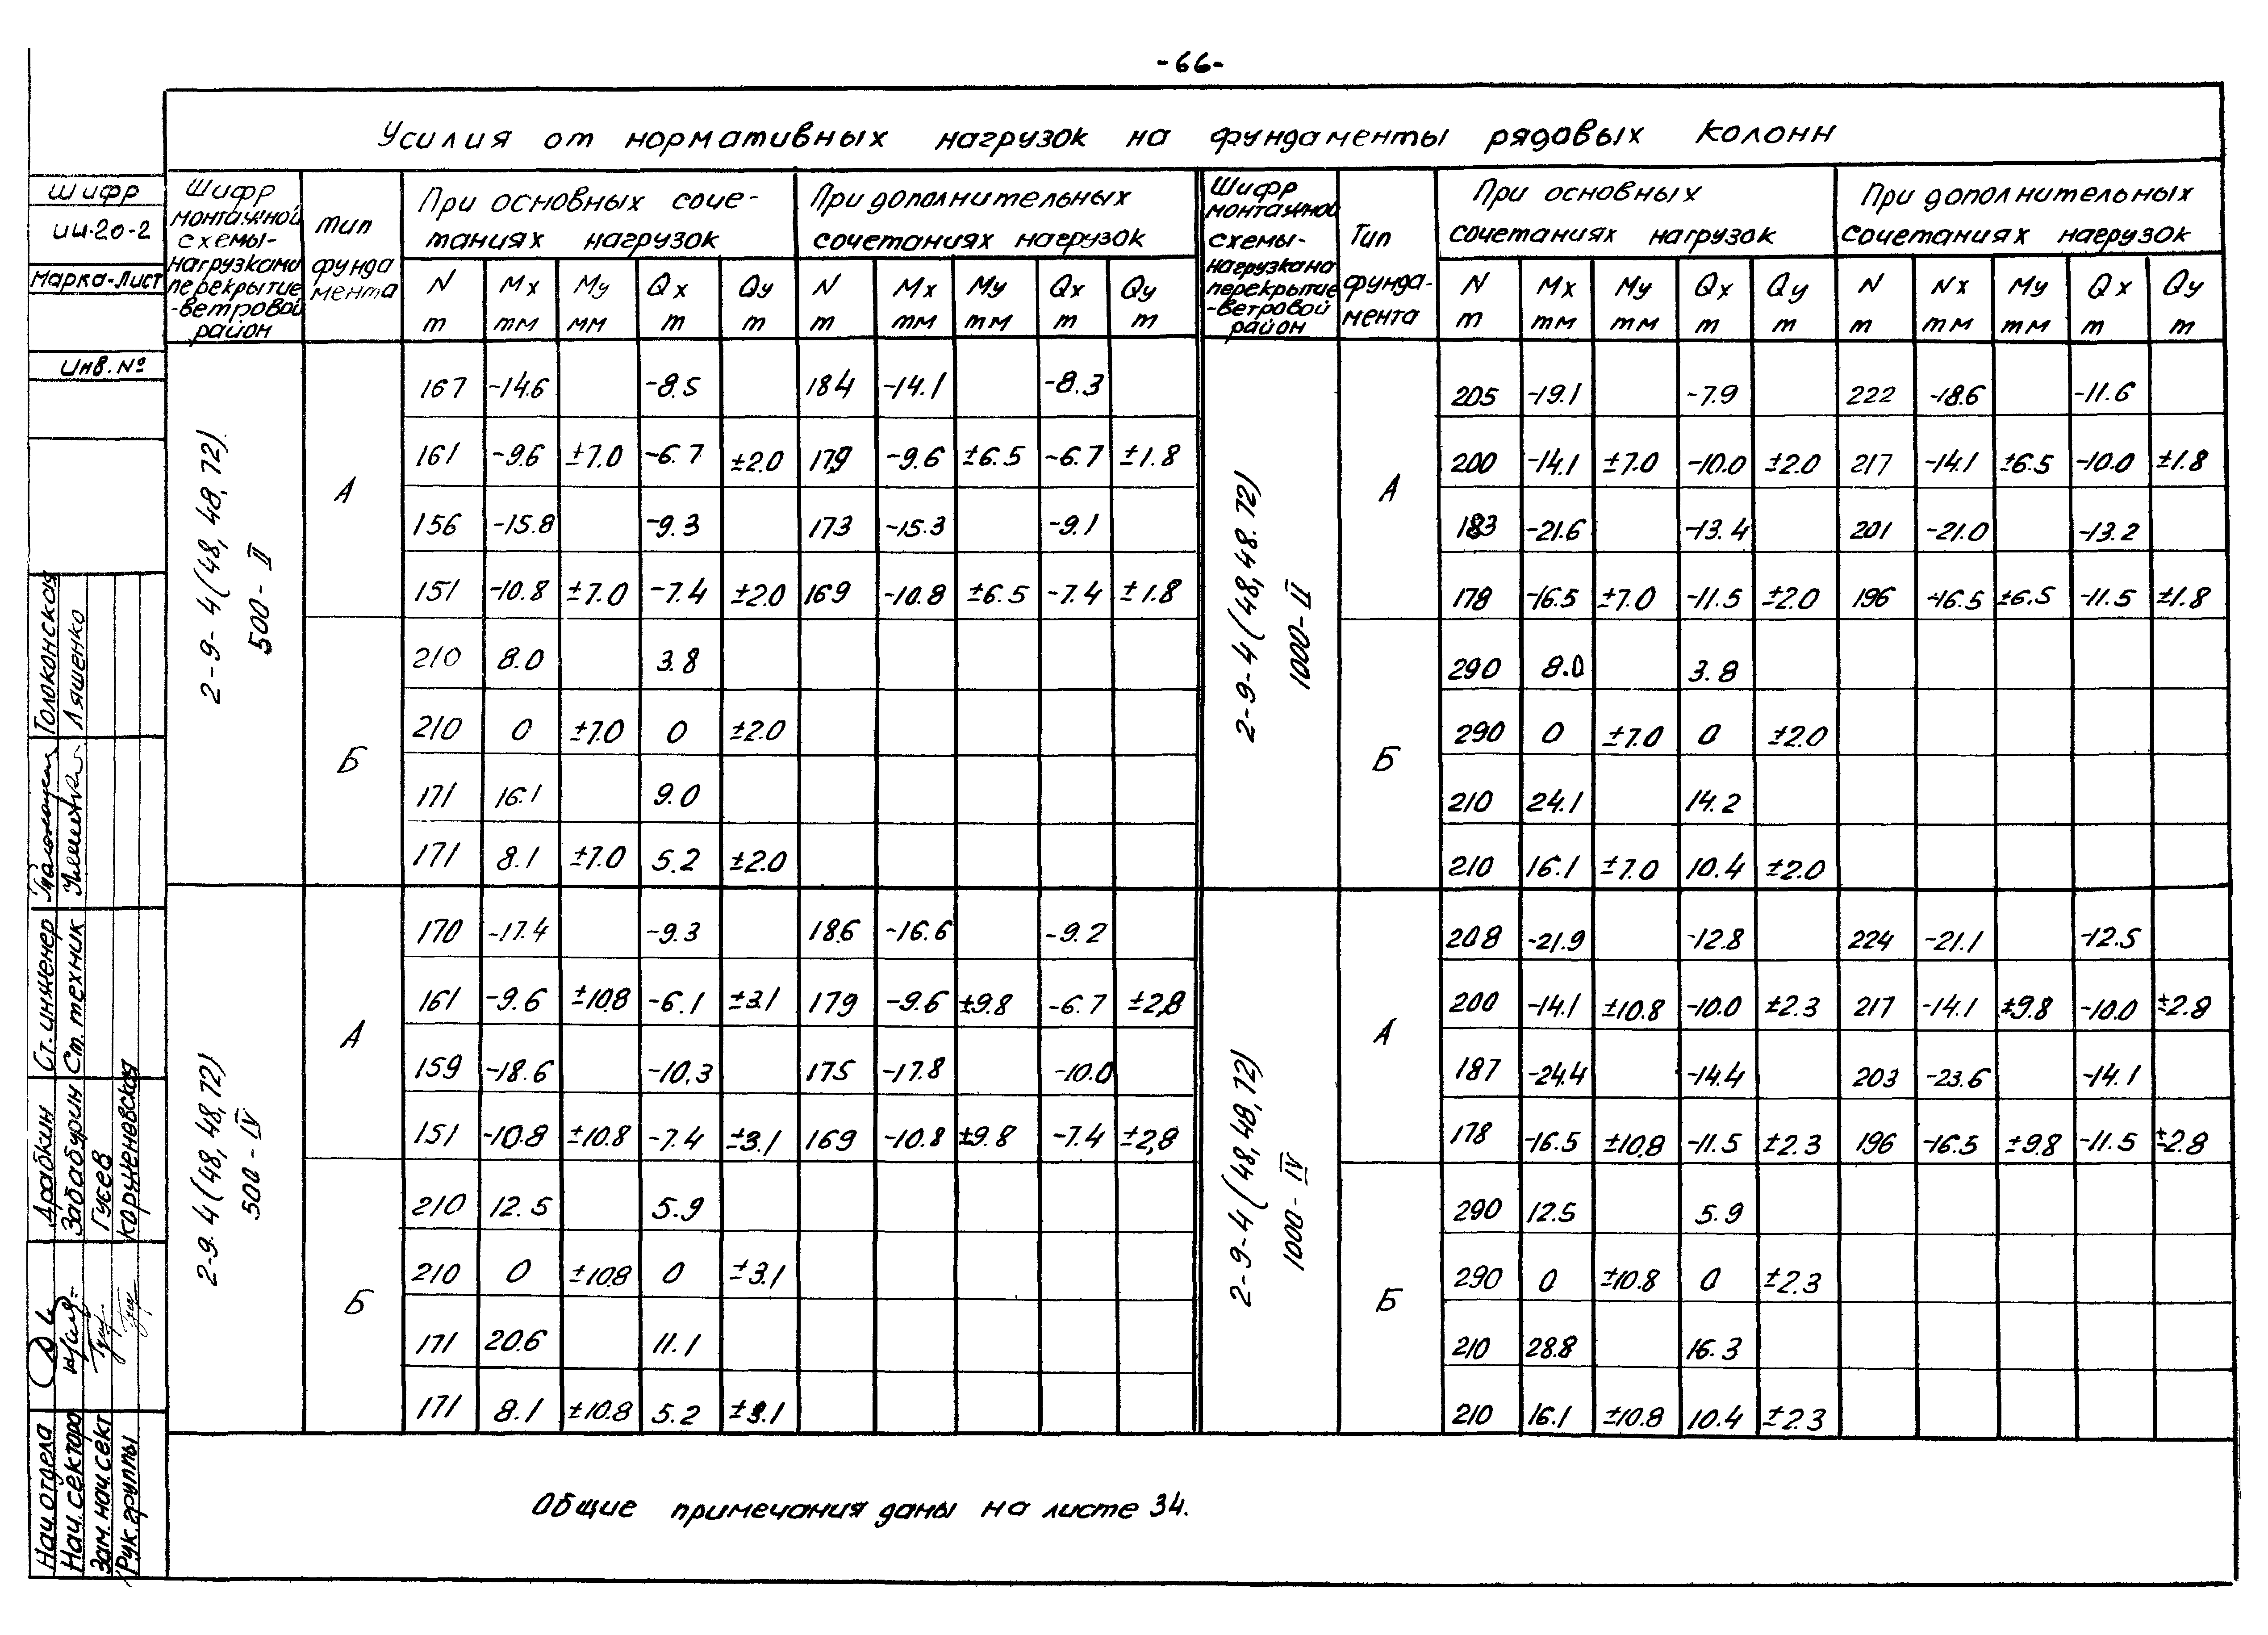 -66-
Усилия от нормативных нагрузок на фундаменты рядовых колонн
Шифр монтажной схемы- нагрузкана перекрытие -ветровой район
тип фунда мента
При основных соче- таниях нагрузок
При дополнительных сочетаниях нагрузок
Шифр монтажной схемы- нагрузкана перекрытие -ветровой район
Тип фунда- мента
При основных сочетаниях нагрузок
При дополнительных сочетаниях нагрузок
N Mx My Qx Qy N Mx My Qx Qy N Mx My Qx Qy N Nx My Qx Qy
т тм мм т т т тм тм т т т тм тм т т т тм тм т т
2-9-4(48,48,72).
500-II
А
167 -14.6 -8.5 184 -14.1 -8.3
161 -9.6 ±7.0 -6.7 ±2.0 179 -9.6 ±6.5 -6.7 ±1.8
156 -15.8 -9.3 173 -15.3 -9.1
151 -10.8 ±7.0 -7.4 ±2.0 169 -10.8 ±6.5 -7.4 ±1.8
Б
210 8.0 3.8
210 0 ±7.0 0 ±2.0
171 16.1 9.0
171 8.1 ±7.0 5.2 ±2.0
2-9.4(48,48,72)
500-IV
А
170 -17.4 -9.3 186 -16.6 -9.2
161 -9.6 ±10.8 -6.1 ±3.1 179 -9.6 ±9.8 -6.7 ±2,8
159 -18.6 -10.3 175 -17.8 -10.0
151 -10.8 ±10.8 -7.4 ±3.1 169 -10.8 ±9.8 -7.4 ±2,8
Б
210 12.5 5.9
210 0 ±10.8 0 ±3.1
171 20.6 11.1
171 8.1 ±10.8 5.2 ±3.1
2-9-4(48,48.72)
1000-II
А
205 -19.1 -7.9 222 -18.6 -11.6
200 -14.1 ±7.0 -10.0 ±2.0 217 -14.1 ±6.5 -10.0 ±1.8
183 -21.6 -13.4 201 -21.0 -13.2
178 -16.5 ±7.0 -11.5 ±2.0 196 -16.5 ±6.5 -11.5 ±1.8
Б
290 8.0 3.8
290 0 ±7.0 0 ±2.0
210 24.1 14.2
210 16.1 ±7.0 10.4 ±2.0
2-9-4(48,48,72)
1000-IV
А
208 -21.9 -12.8 224 -21.1 -12.5
200 -14.1 ±10.8 -10.0 ±2.3 217 -14.1 ±9.8 -10.0 ±2.8
187 -24.4 -14.4 203 -23.6 -14.1
178 -16.5 ±10.8 -11.5 ±2.3 196 -16.5 ±9.8 -11.5 ±2.8
Б
290 12.5 5.9
290 0 ±10.8 0 ±2.3
210 28.8 16.3
210 16.1 ±10.8 10.4 ±2.3
Общие примечания даны на листе 34.
шифр
ИИ-20-2
Марка-Лист
Инв. №
Нач. отдела Драбкин Ст. инженер Толоконская
Нач. сектора Забабурин Ст. техник Ляшенко
Зам. нач. сект Гусев
Рук. группы Коруненевская